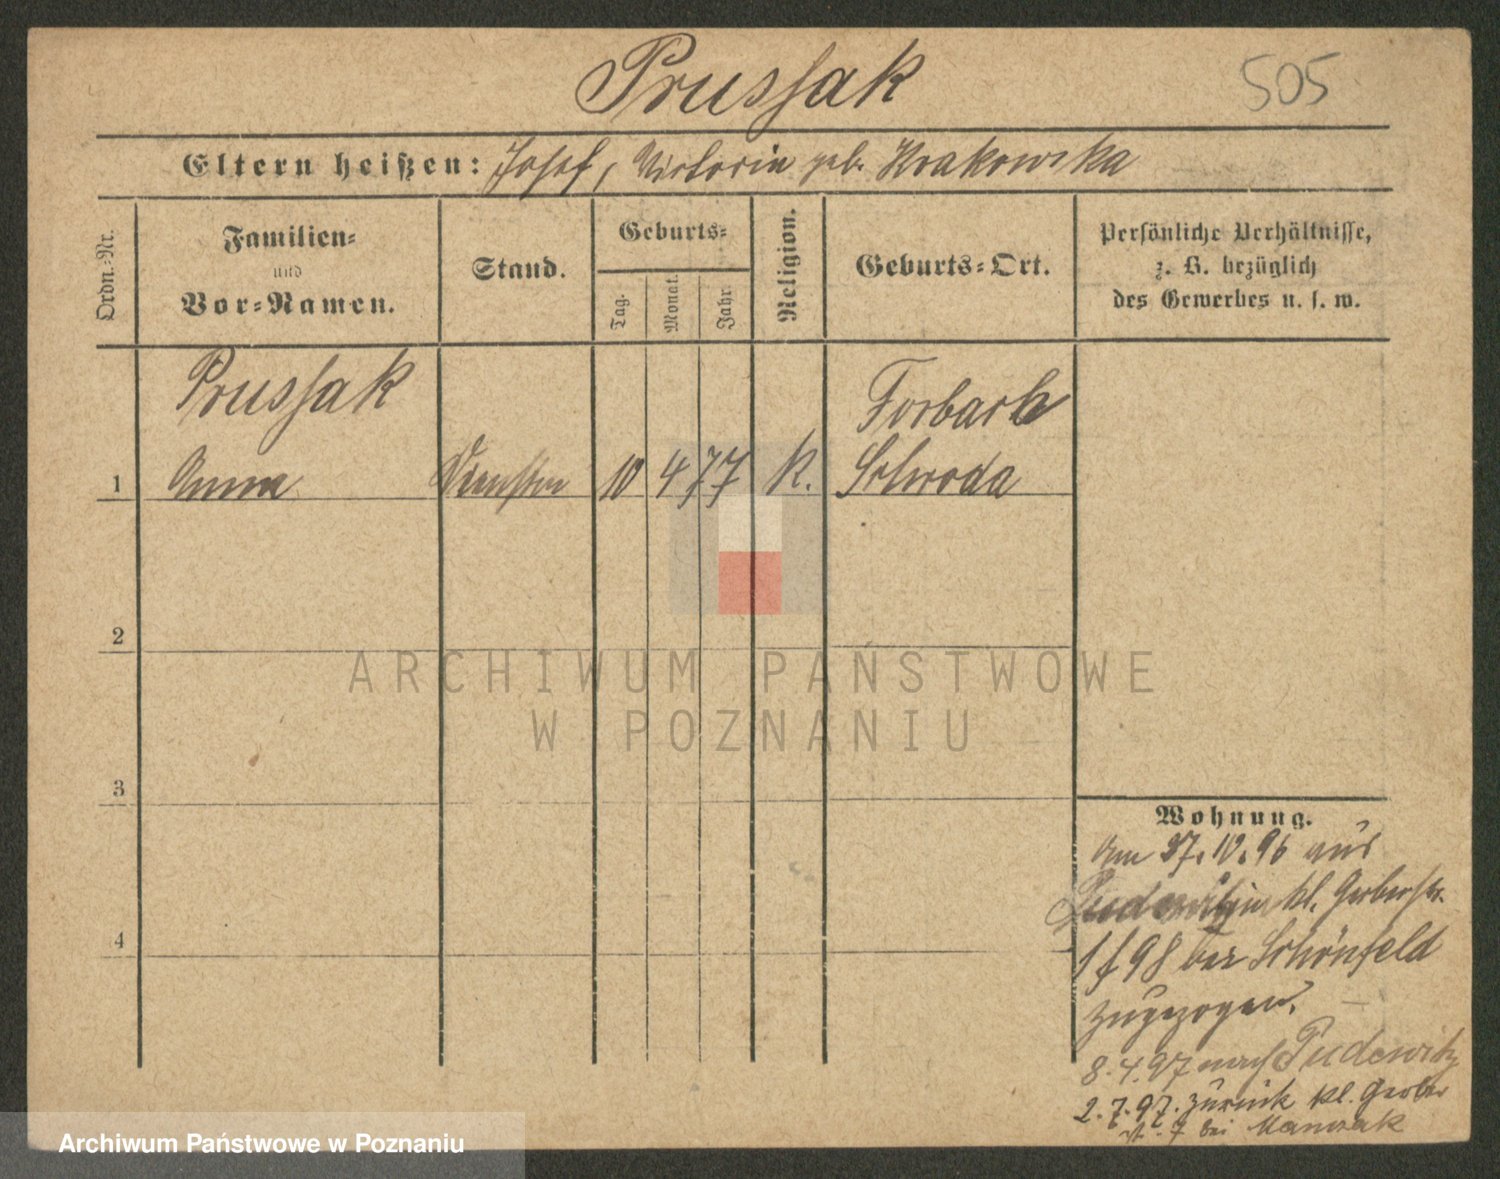 Prussak
505
Eltern heißen: Josef, Victoria geb. Krakowska
Ordn.-Nr.
Familien-
und
Vor-Namen.
Stand.
Geburts-
Tag.
Monat.
Jahr.
Religion.
Geburts-Ort.
Persönliche Verhältnisse,
z. B. bezüglich
des Gewerbes u. s. w.
Prussak
Forbach
1 Anna 10 4 77 K. Schroda
2
3
4
ARCHIWUM PAŃSTWOWE
W POZNANIU
Wohnung.
Am 27.10.96 aus
kl. Gerberstr.
bei Schönfeld
zugezogen.
8.4.97 nach Pudewitz
2.7.97. zurück kl. Gerber
st. 7 bei
Archiwum Państwowe w Poznaniu